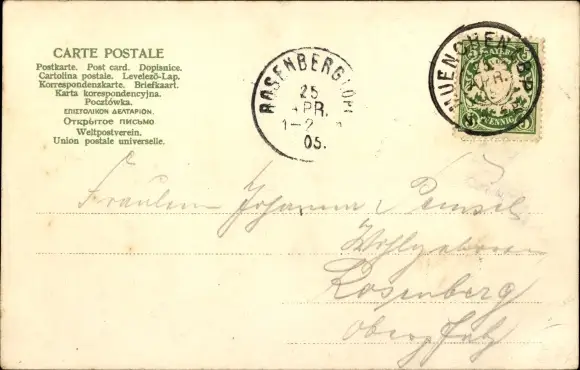 CARTE POSTALE
Postkarte. Post card. Dopisnice.
Cartolina postale. Levelező-Lap.
Korrespondenzkarte. Briefkaart.
Karta korespondencyjna.
Pocztówka.
ΕΠΙΣΤΟΛΙΚΟΝ ΔΕΛΤΑΡΙΟΝ.
Открытое письмо
Weltpostverein.
Union postale universelle.
ROSENBERG
25
APR.
1-2
05.
MUENCHEN
APR.
PFENNIG
Fräulein Johanna
Wohlgeboren
Rosenberg
Oberpfalz